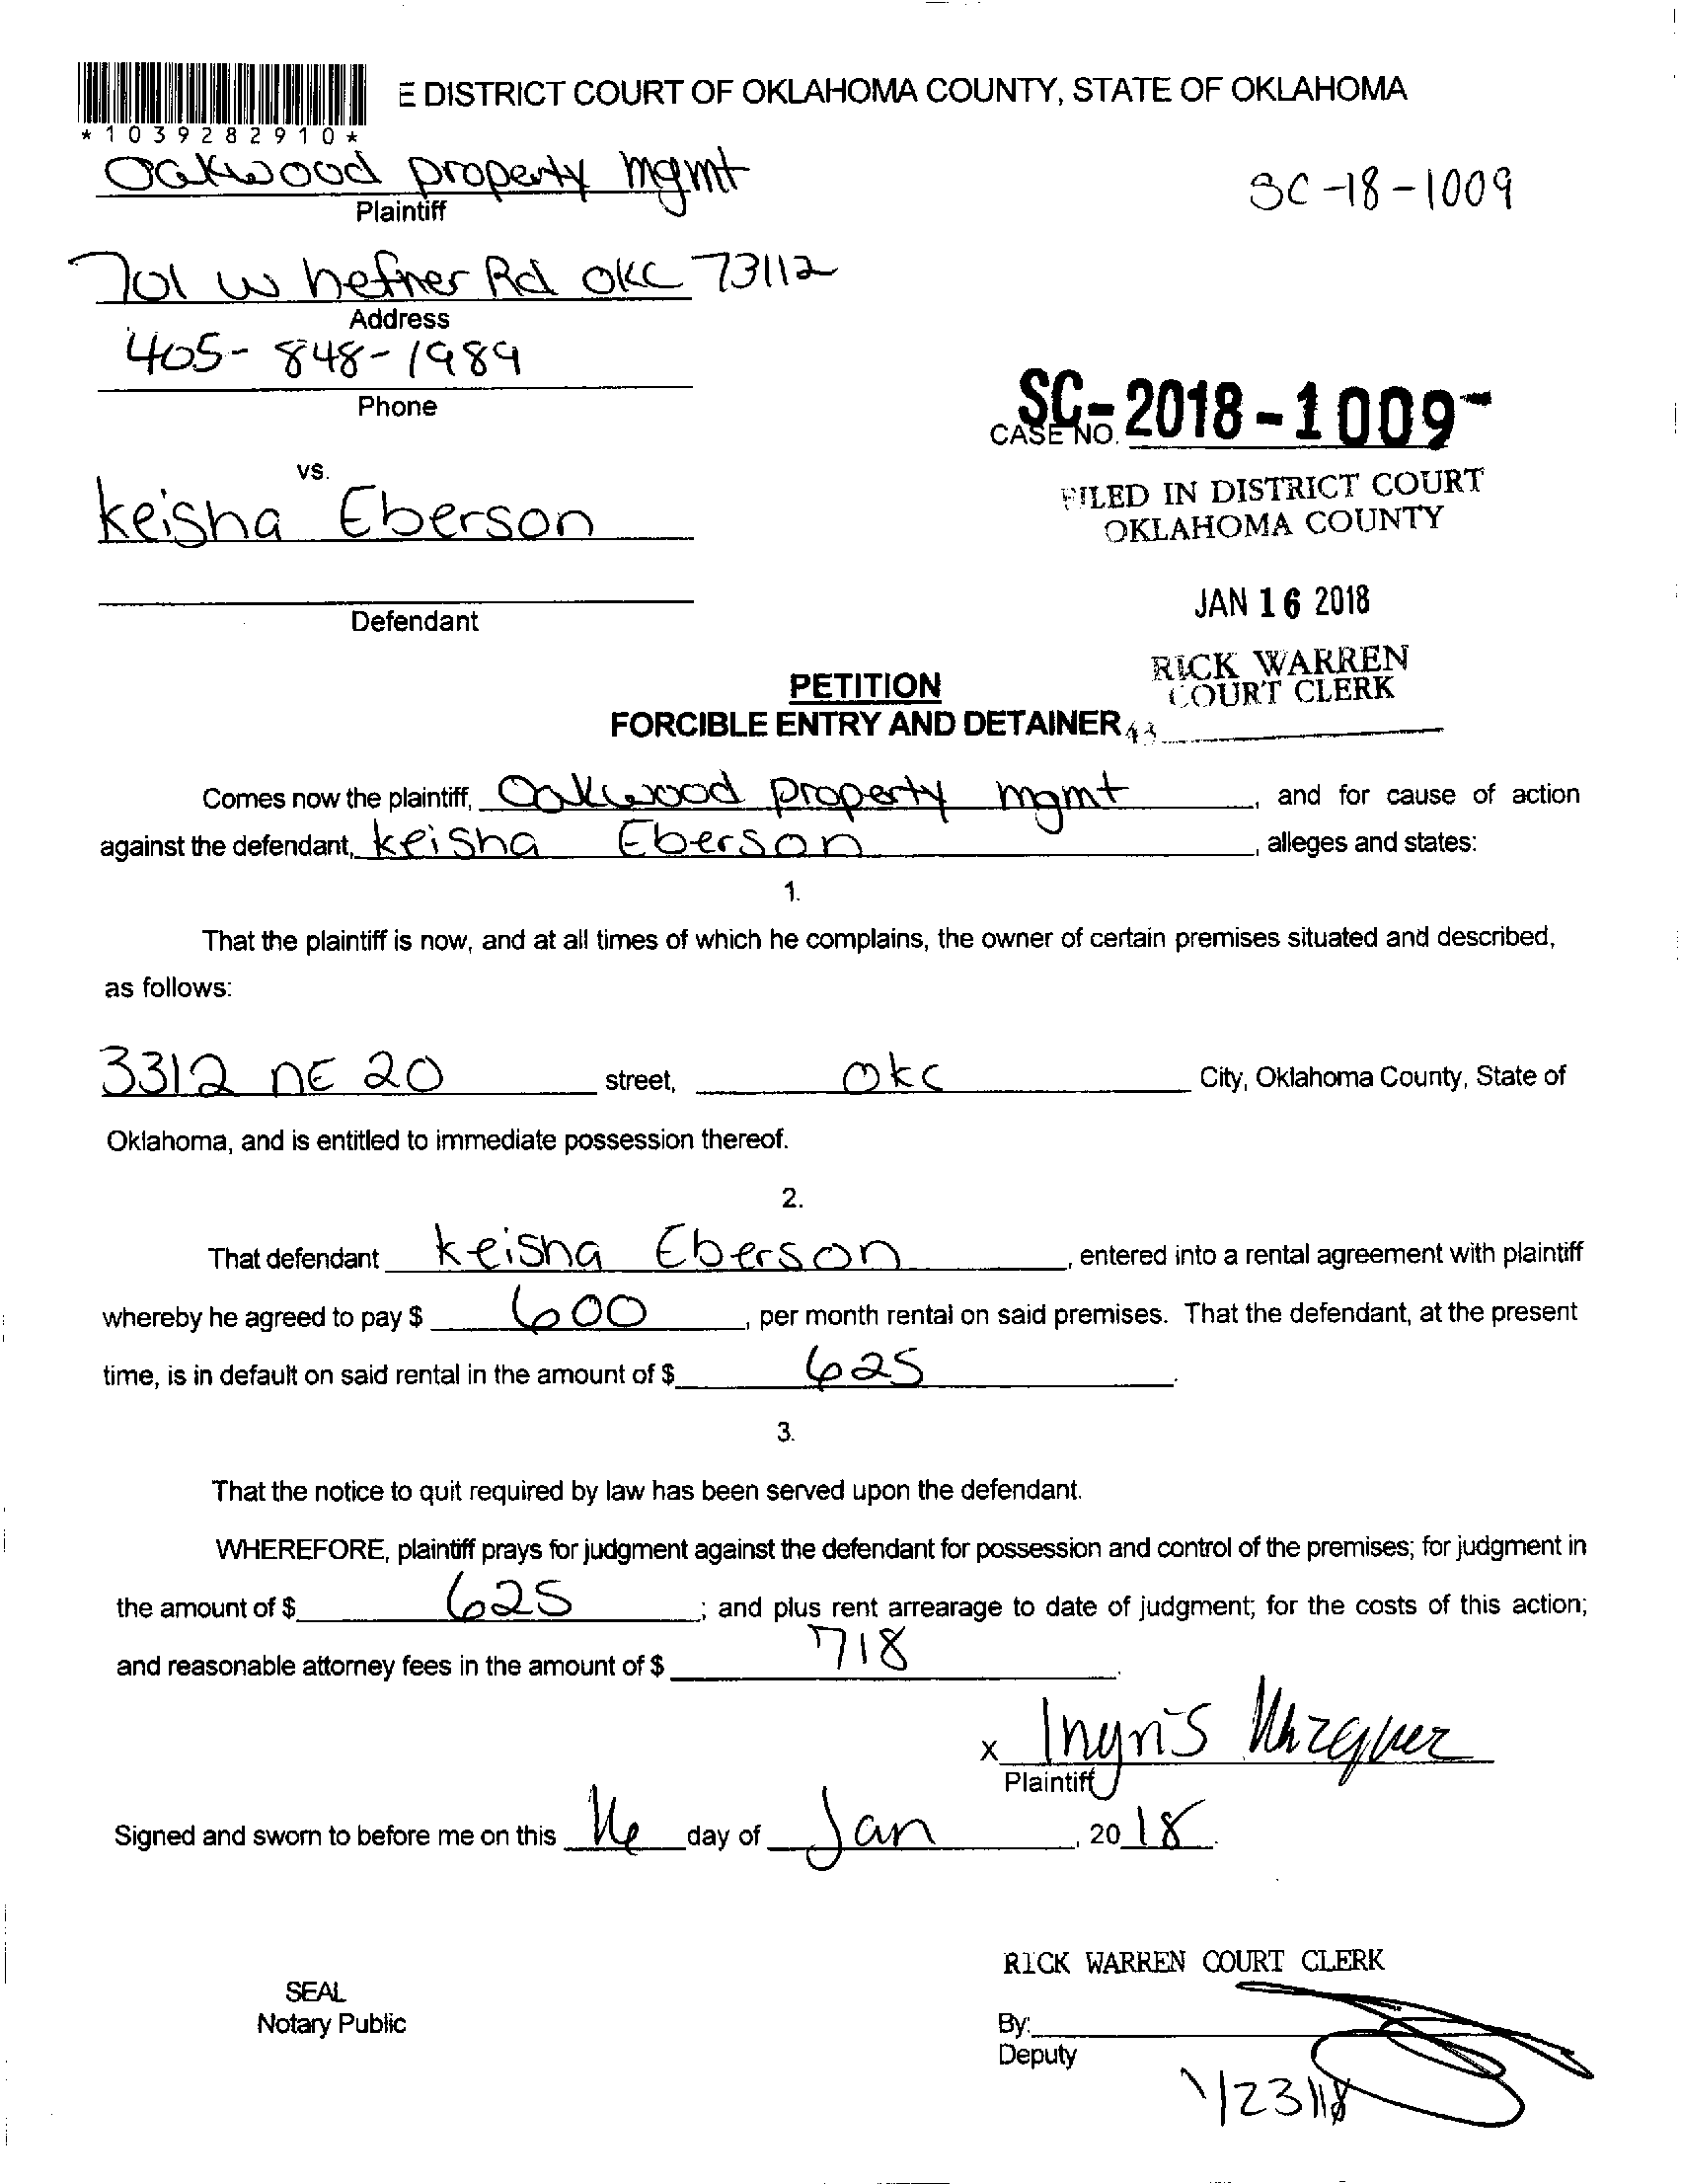 E DISTRICT COURT OF OKLAHOMA COUNTY, STATE OF OKLAHOMA
*1039282910*
Oakwood property mgmt
Plaintiff
SC-18-1009
701 W hefner Rd OKC 73112
Address
405-848-1989
Phone
SC-2018-1009-
CASE NO.
vs.
FILED IN DISTRICT COURT
OKLAHOMA COUNTY
keisha Eberson
JAN 16 2018
Defendant
RICK WARREN
COURT CLERK
PETITION
FORCIBLE ENTRY AND DETAINER
Comes now the plaintiff, Oakwood property mgmt, and for cause of action
against the defendant, keisha Eberson, alleges and states:
1.
That the plaintiff is now, and at all times of which he complains, the owner of certain premises situated and described,
as follows:
3312 NE 20 street, OKC City, Oklahoma County, State of
Oklahoma, and is entitled to immediate possession thereof.
2.
That defendant keisha Eberson, entered into a rental agreement with plaintiff
whereby he agreed to pay $ 600, per month rental on said premises. That the defendant, at the present
time, is in default on said rental in the amount of $ 625.
3.
That the notice to quit required by law has been served upon the defendant.
WHEREFORE, plaintiff prays for judgment against the defendant for possession and control of the premises; for judgment in
the amount of $ 625; and plus rent arrearage to date of judgment; for the costs of this action;
and reasonable attorney fees in the amount of $ 718.
x Ingris
Plaintiff
Signed and sworn to before me on this 16 day of Jan, 20 18.
RICK WARREN COURT CLERK
SEAL
Notary Public
By:
Deputy
1/23/18